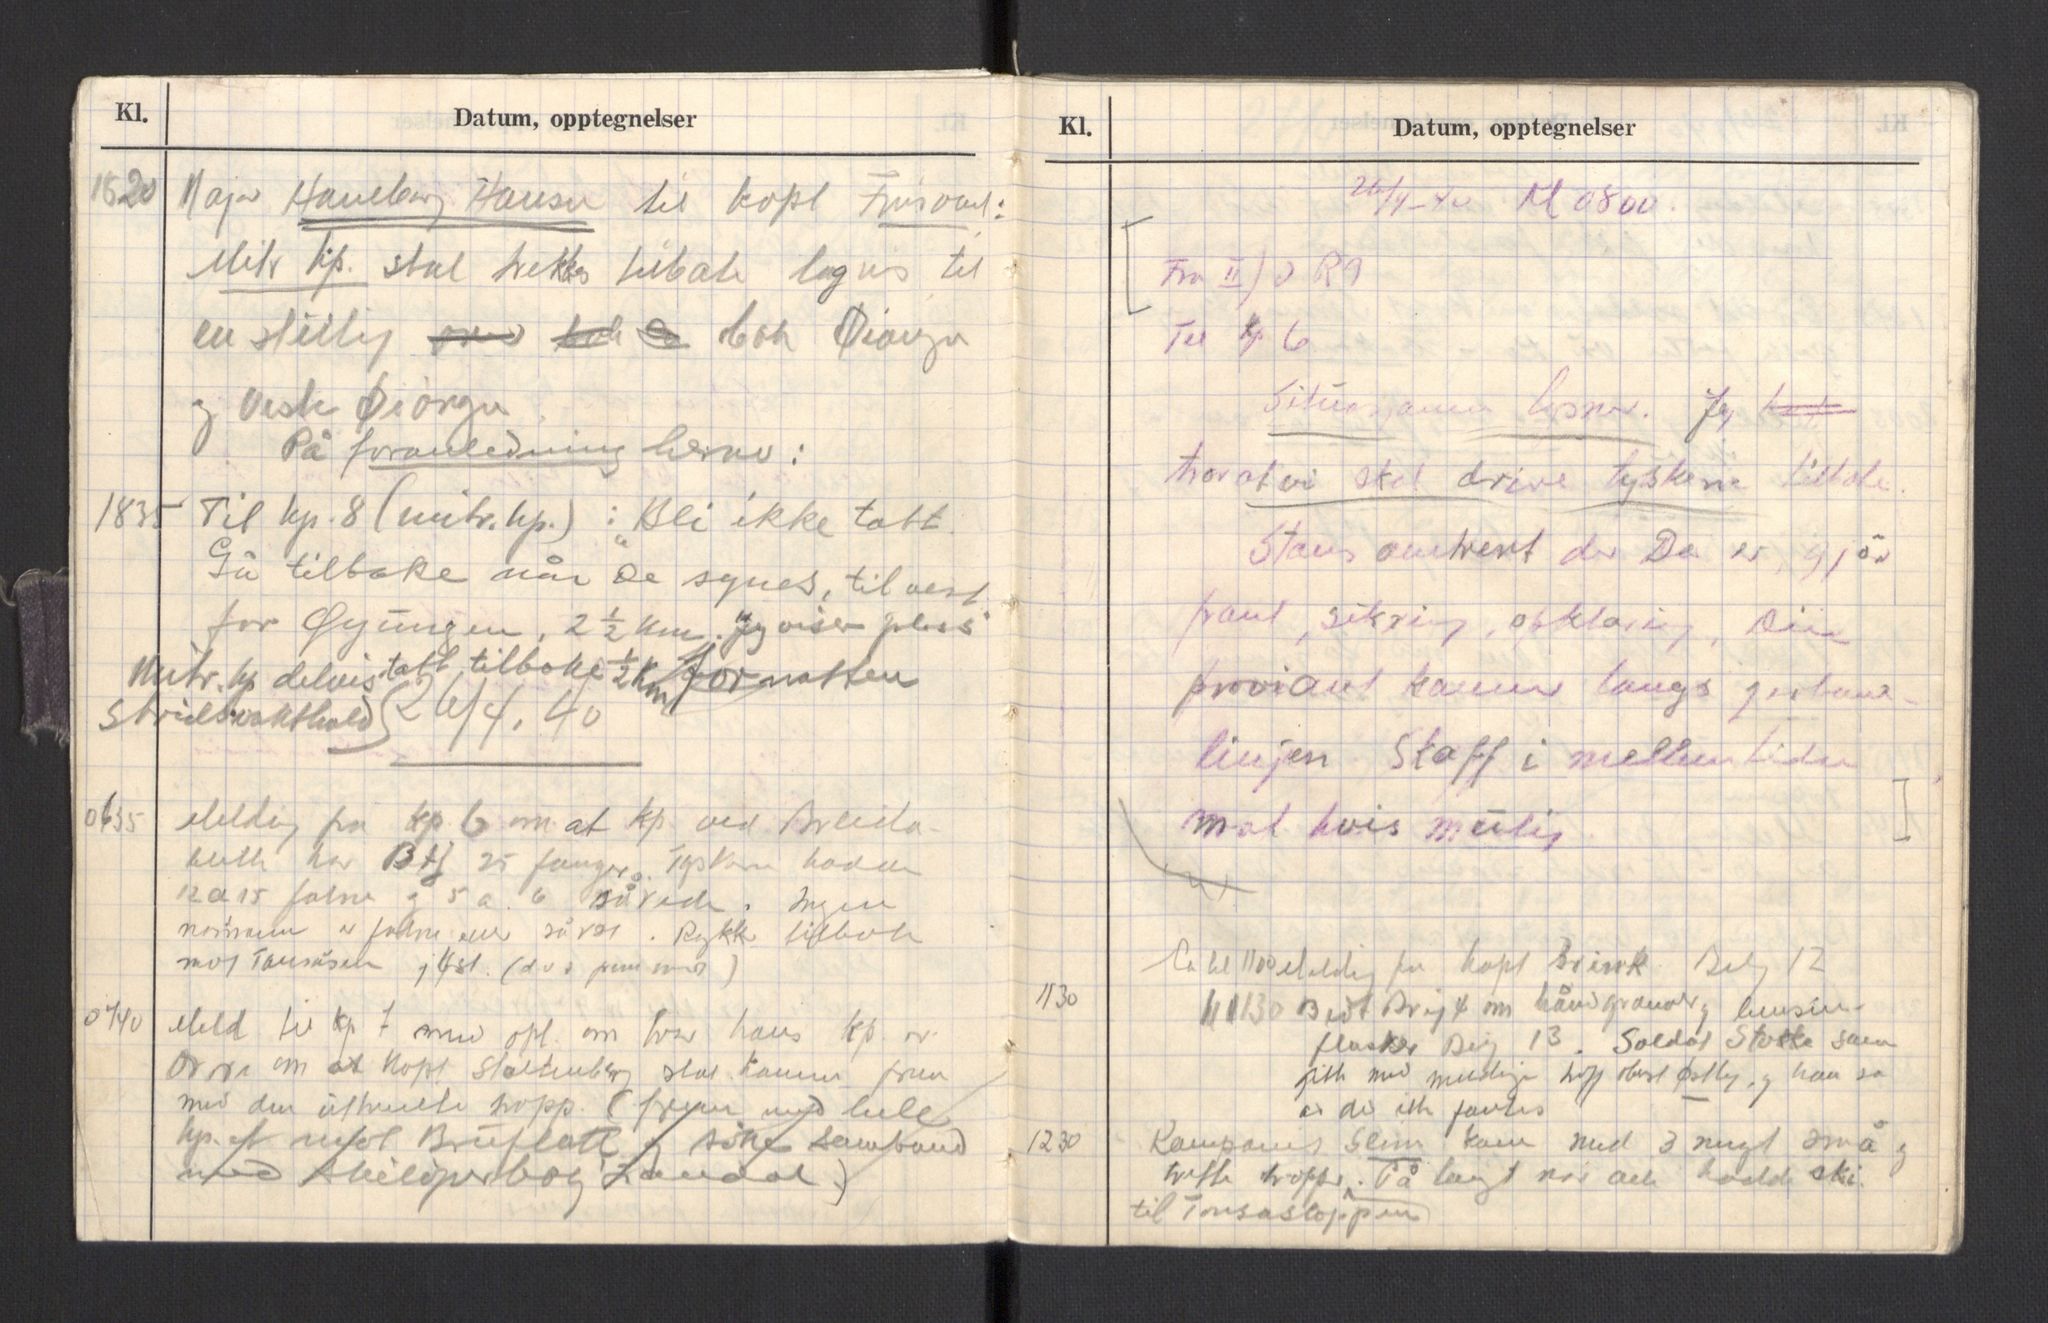 Kl. Datum, opptegnelser
1820 Major Hauberg Hansen til kapt
Mitr kp. skal trekkes tilbake til
en stilling bak Øiangen
og Vestre Øiangen
På foranledning herav:
1835 Til kp. 8 (mitr. kp.): "Bli ikke tatt
Gå tilbake når De synes, til vest
for Øyangen, 2 1/2 km. Jeg viser plass"
Mitr. kp delvis tatt tilbake 1/2 km for natten
Stridsvakthold
26/4. 40
0635 Melding fra kp. 6 om at kp. ved
har 25 fanger. Tyskerne hadde
12 a 15 falne og 5 a 6 sårede. Ingen
nordmenn er falne eller såret. Rykk tilbake
mot Tonsåsen
0740 Meld. til kp 7 med om hvor hans kp. er
Ordre om at Kapt Stoltenberg skal komme frem
med den tropp. (frem med hele
kp. Bruflatt og søke samband
med Landal.)
Kl. Datum, opptegnelser
26/4-40 Kl 0800.
Fra II/ I R 9
Til kp 6
Situasjonen lysner. Jeg
tror at vi skal drive tyskerne tilbake.
Stans omtrent der De er, gjør
front, sikring, opklaring, Din
proviant kommer langs jernbane-
linjen. Skaff i mellemtiden
mat hvis mulig.
Ca kl 1100 Melding fra kapt Brinck. Bilag 12
1130 1130 Bedt Brig 4 om håndgranater og bensin-
flasker Bilag 13. Soldat som
gikk med melding traff oberst Østbye, og han sa
at de ikke fantes
1230 Kompani Slinn kom med 3 meget små og
trette tropper. På langt nær alle hadde ski.
til Tonsåsloppen